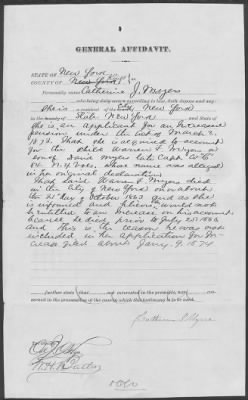 GENERAL AFFIDAVIT.
STATE OF New York
COUNTY OF New York } ss
Personally came Catherine J. Myers
who being duly sworn according to law, doth depose and say
She is a resident of the City New York
in the County State New York and State of
She is an applicant for an increase
pension under the act of March 3.
1873. That she is required to account
for the child Warren F. Myers a
son of David Myers late Capt. Co
N.Y. Vols. whose name was alleged
in her original declaration
That said Warren F. Myers died
in the City of New York on or about
the day of October 1863 and as she
is informed and believes would not
be entitled to an increase on his account
as he died prior to July 25. 1866
and this is the reason he was not
included in her application for In
crease filed about Jany. 9. 1874
further state that not interested in the
cerned in the prosecution of this claim.
Catherine J Myers